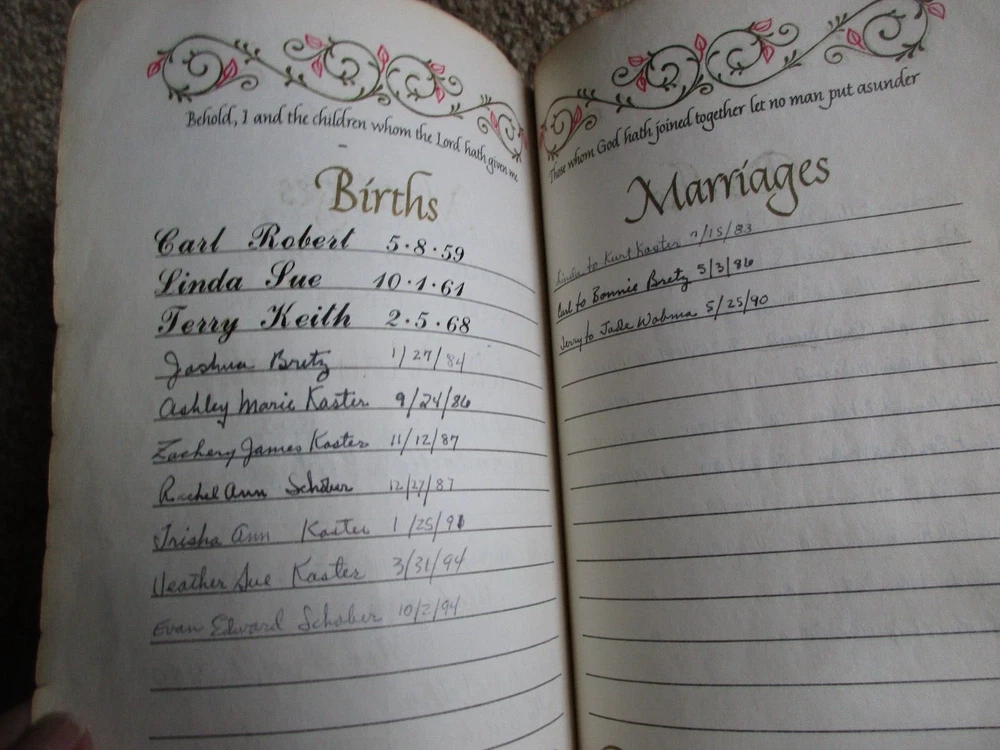 Behold, I and the children whom the Lord hath given me
Births
Carl Robert 5·8·59
Linda Sue 10·1·61
Terry Keith 2·5·68
Joshua Bretz 1/27/84
Ashley Marie Kaster 9/24/86
Zachery James Kaster 11/12/87
Rachel Ann Schober 12/27/87
Trisha Ann Kaster 1/25/91
Heather Sue Kaster 3/31/94
Evan Edward Schober 10/2/94
Those whom God hath joined together let no man put asunder
Marriages
Linda to Kurt Kaster /15/83
Carl to Bonnie Bretz 5/3/86
Terry to Jade Wobma 5/25/90